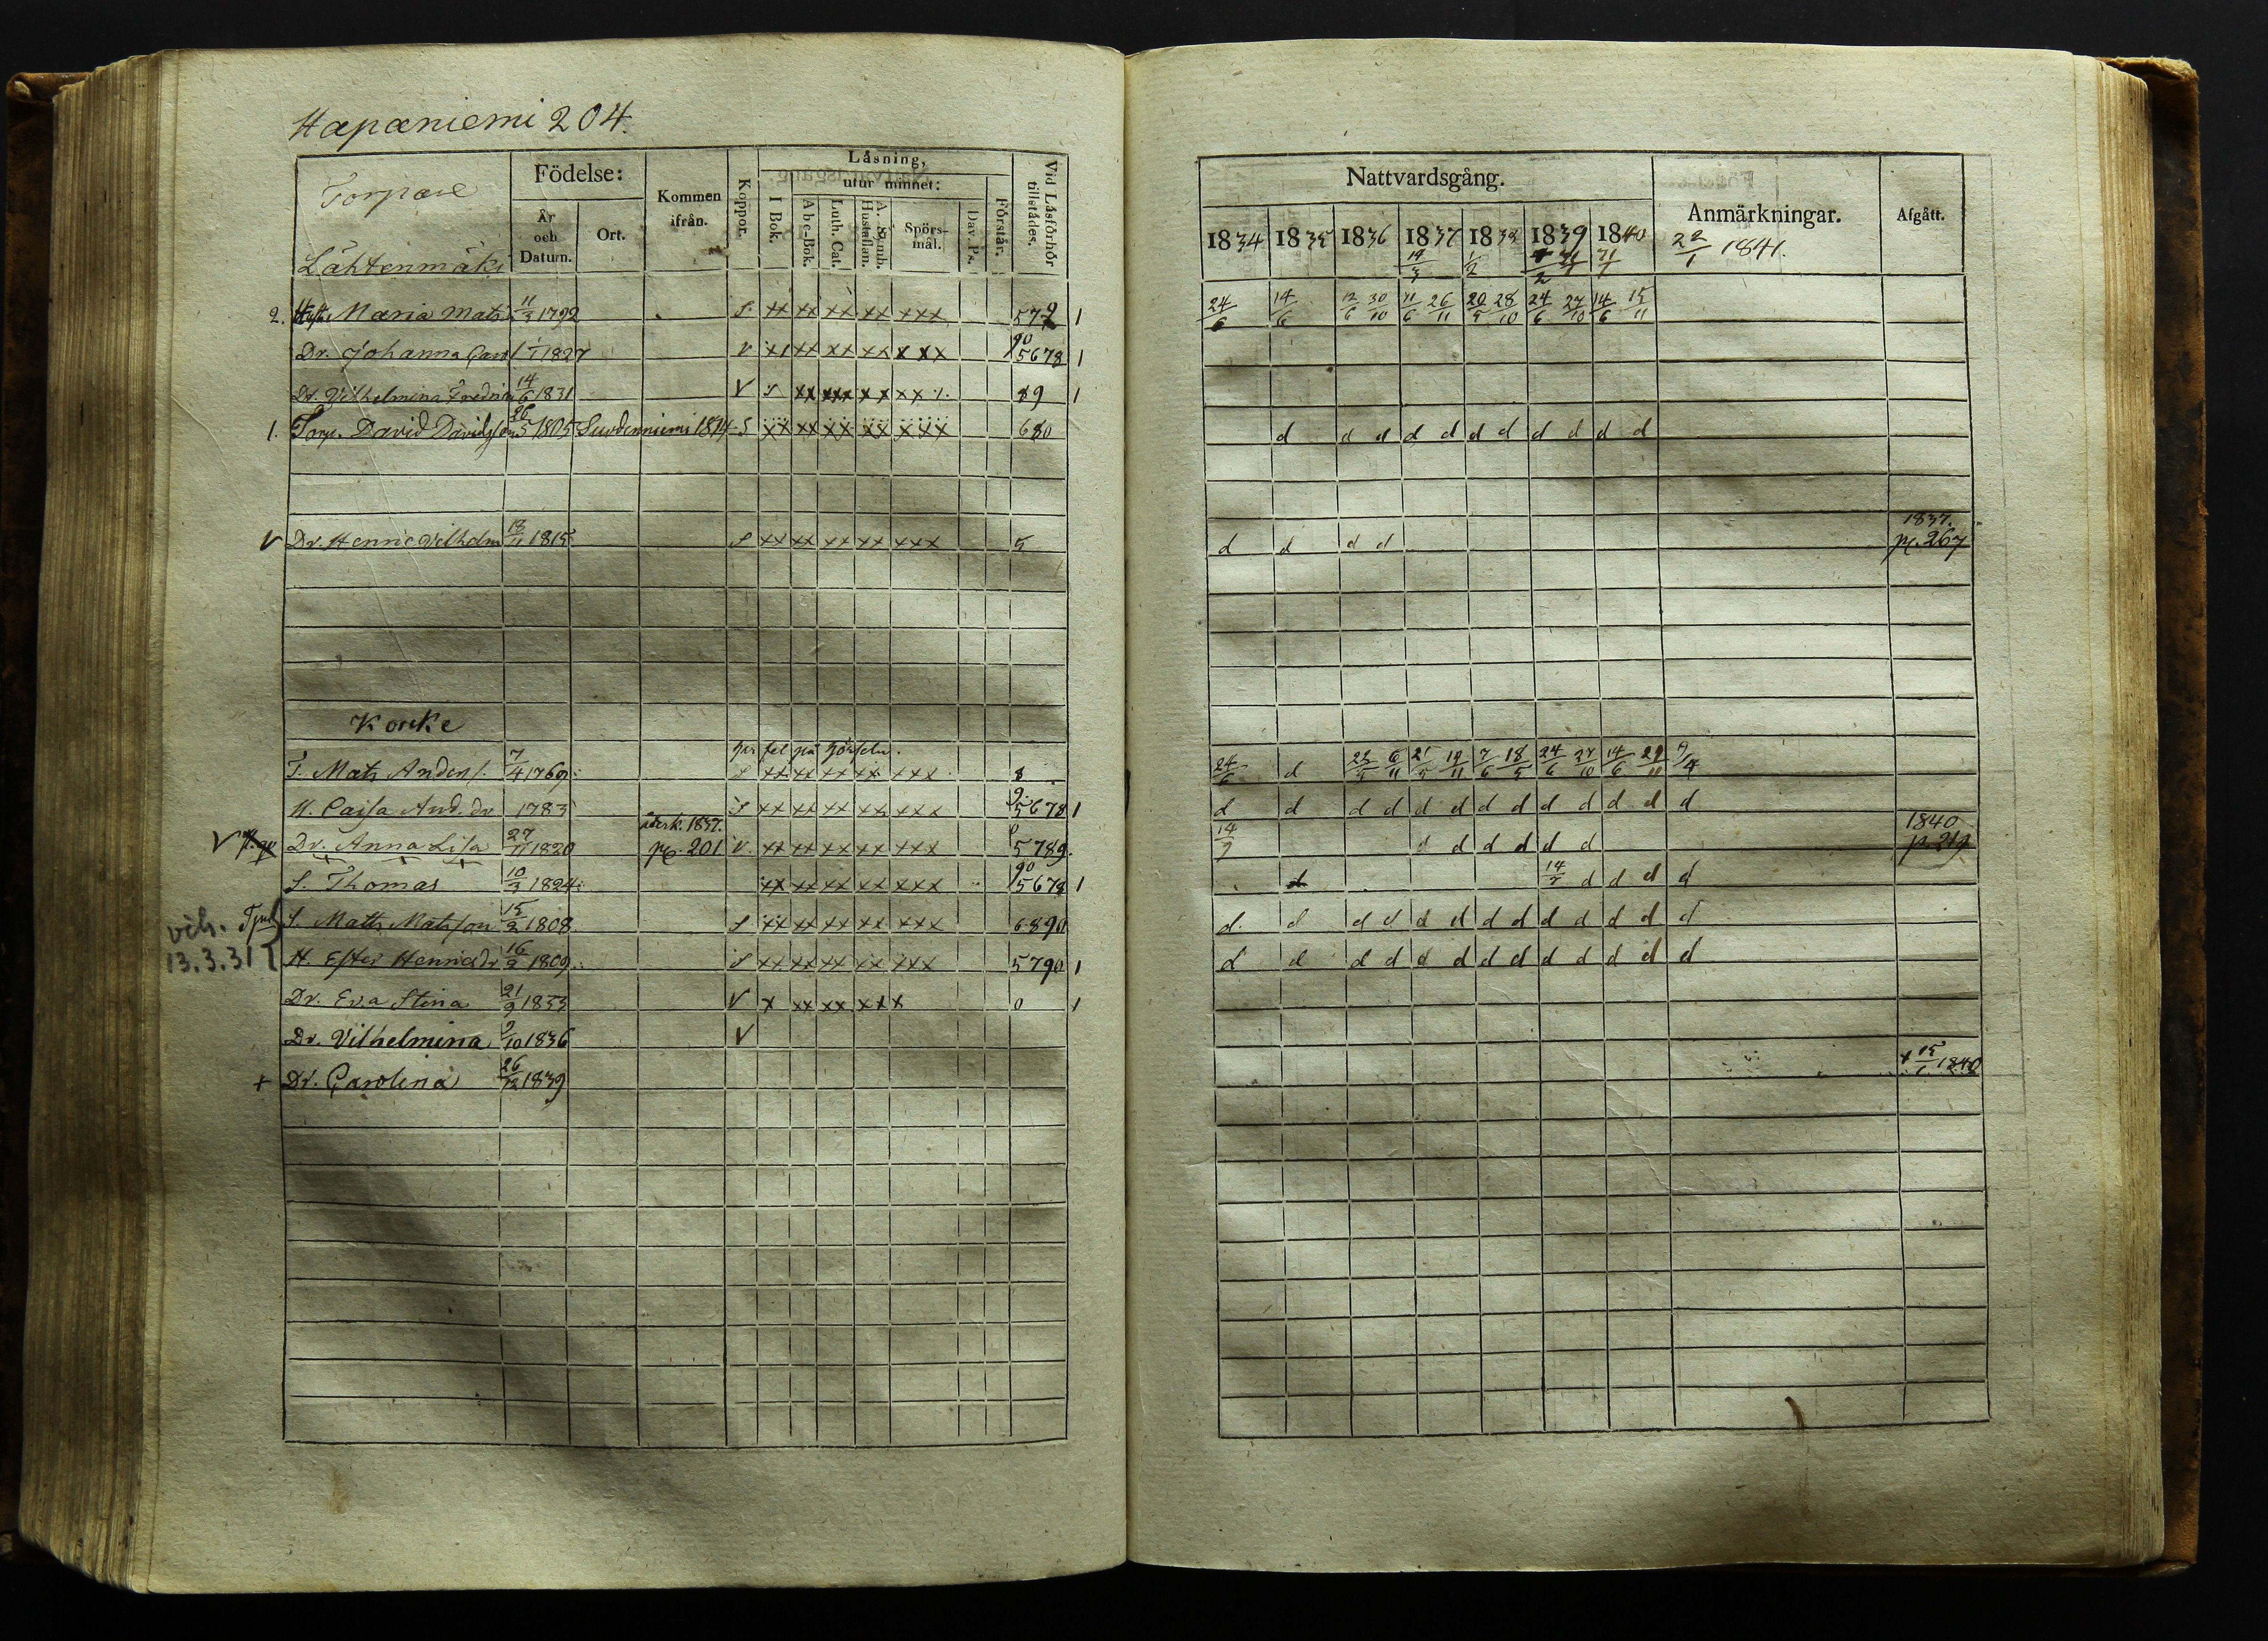 Hapaniemi 204.
Torpare
Lähtenmäki
Födelse:
År och Datum.
Ort.
Kommen ifrån.
Koppor.
Låsning,
I Bok.
utur minnet:
Abc-Bok.
Luth. Cat.
A. Symb. Hustaflan.
Spörs-mål.
Dav. Ps.
Förstår.
Vid Låsförhör tillstådes.
2. Hust. Maria Mats 11/3 1792 S xx xx xx xx xxx 1
Dr. Johanna Carol 1/1 1827 v xx xx xx xx xxx 90 5678 1
Dr. Vilhelmina Fredrica 14/6 1831 V xx xxx xx 89 1
1. Torp. David Davidsson 26/5 1805 Suvdenniemi 1814 S xx xx xx xx xxx 680
V Dr. Henric Vilhelm 18/11 1815 S xx xx xx xx xxx 5
Koncke
har fel på hörseln.
T. Mats Anders. 7/4 1769 S xx xx xx xx xxx 8
H. Caisa And. dr 1783 S xx xx xx xx xxx 9 5678 1
återk. 1837.
V Dr. Anna Lisa 27/11 1820 pg. 201 V. xx xx xx xx xxx 0 5789.
S. Thomas 10/3 1824 xx xx xx xx xxx 90 5678 1
S. Matts Matsson 15/2 1808 S xx xx xx xx xxx 6890
vih.
13.3.31
H. Ester Henricsdr 16/2 1809 S xx xx xx xx xxx 5790 1
Dr. Eva Stina 21/9 1833 V x xx xx xxx 0 1
Dr. Vilhelmina 9/10 1836 V
+ Dr. Carolina 26/12 1839
Nattvardsgång.
Anmärkningar.
Afgått.
1834 1835 1836 1837 1838 1839 1840
22/1 1841.
24/6 14/6 12/6 30/10 11/6 26/11 20/5 28/10 24/6 27/10 14/6 15/11
d d d d d d d d d d d
1837.
d d d d pg. 267
24/6 d 22/5 6/11 21/5 19/11 7/6 18/5 24/6 27/10 14/6 29/11
d d d d d d d d d d d d d
1840
14/7 d d d d d d p 219
d 14/7 d d d d
d d d d d d d d d d d d d
d d d d d d d d d d d d d
+ 15/1 1840